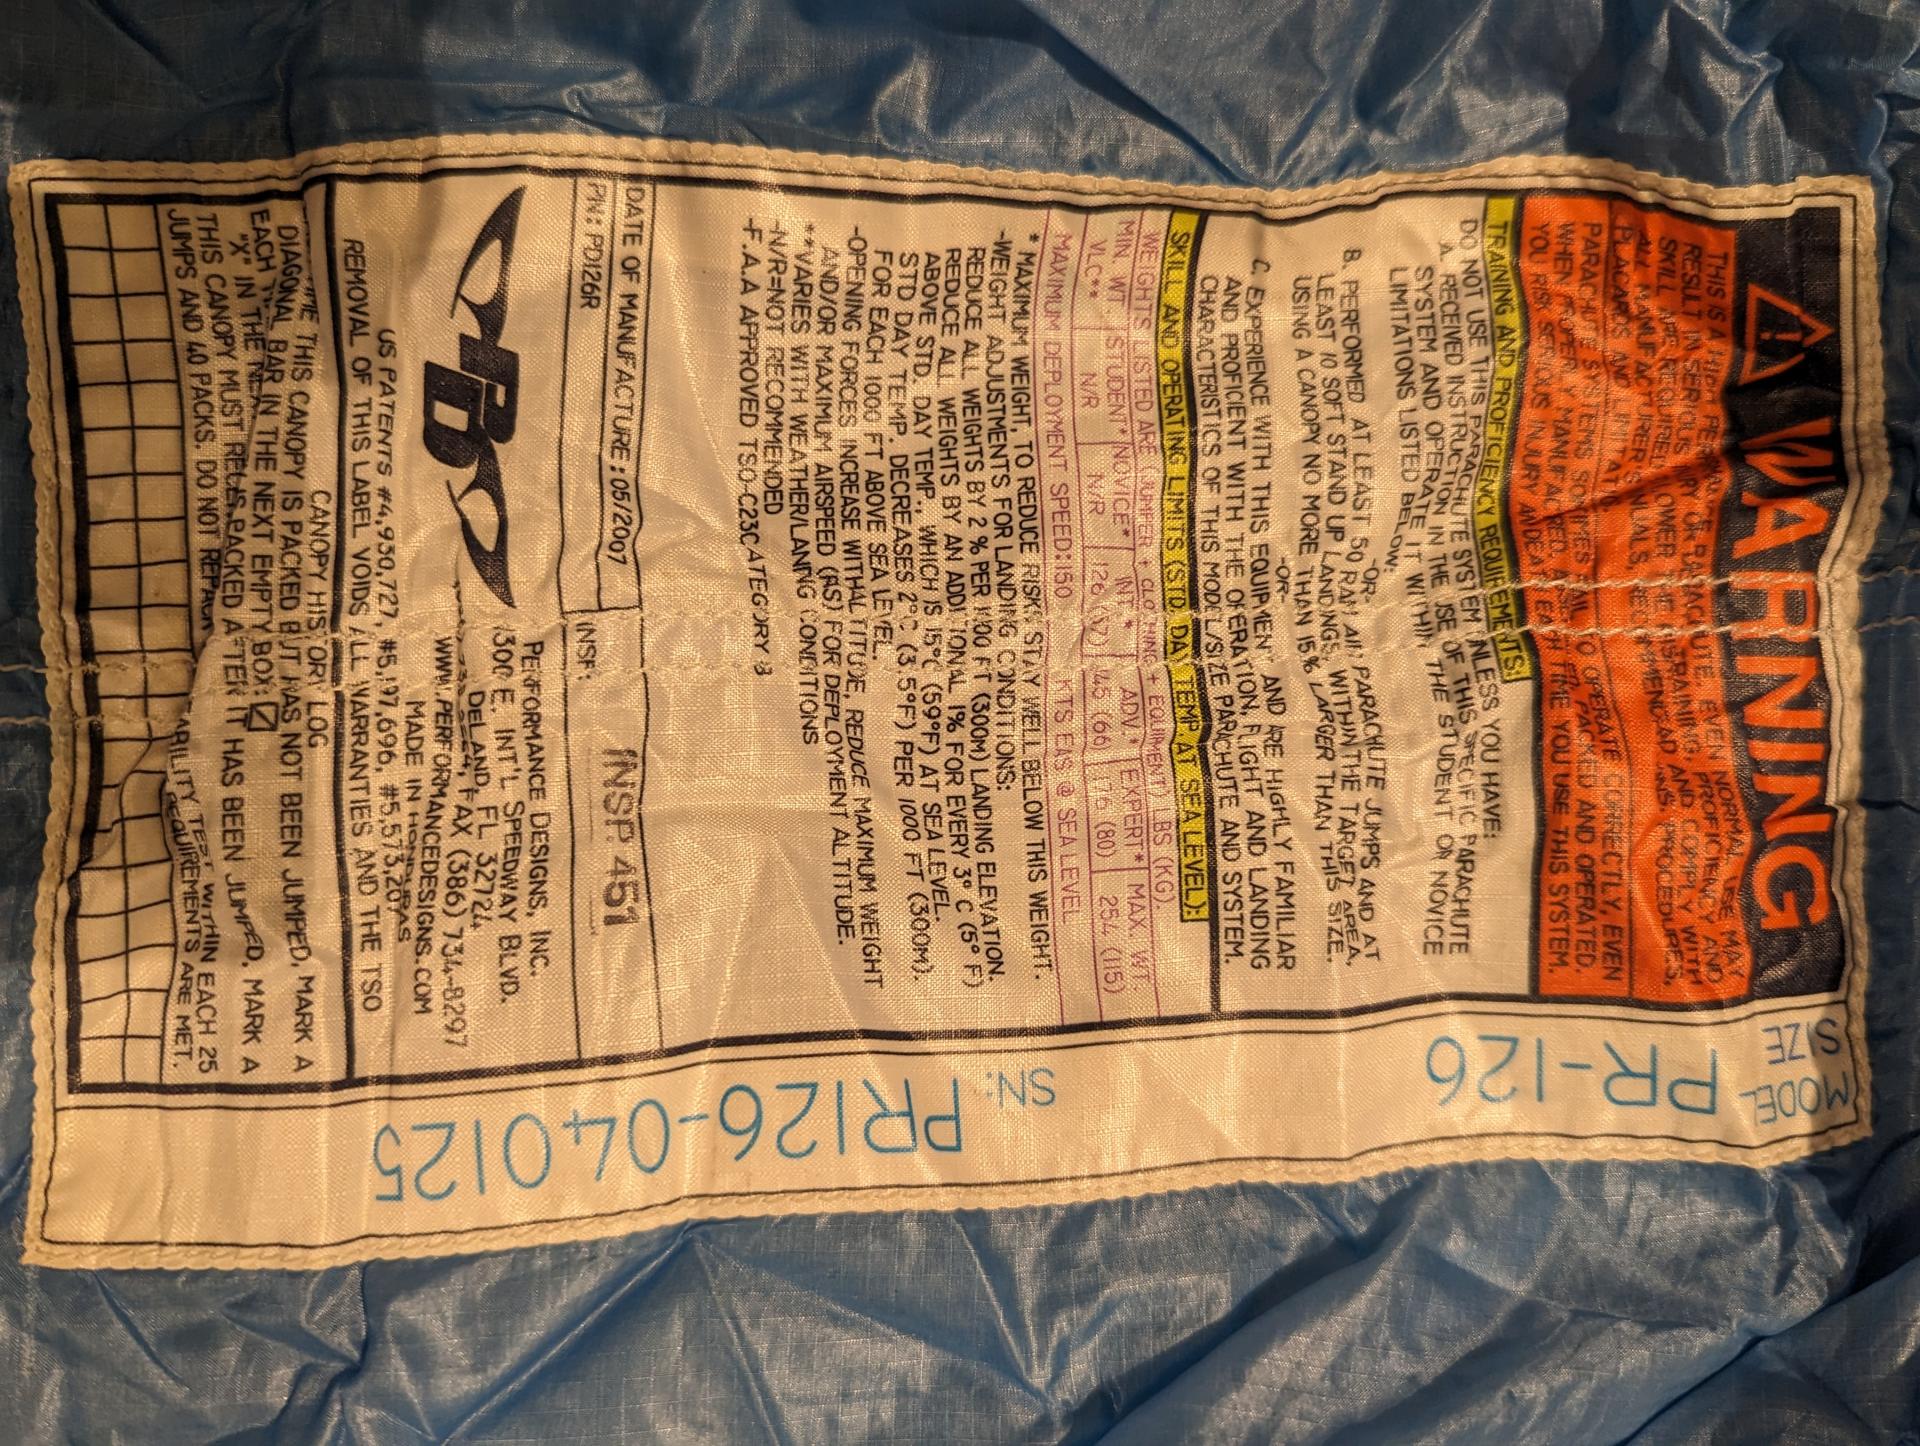 WARNING
RESULT IN SERIOUS INJURY OR PARACHUTE. EVEN NORMAL USE MAY
WHEN PROPERLY MANUFACTURED, PACKED AND OPERATED.
YOU RISK SERIOUS INJURY AND DEATH EACH TIME YOU USE THIS SYSTEM.
TRAINING AND PROFICIENCY REQUIREMENTS:
DO NOT USE THIS PARACHUTE SYSTEM UNLESS YOU HAVE:
A. RECEIVED INSTRUCTION IN THE USE OF THIS SPECIFIC PARACHUTE
SYSTEM AND OPERATE IT WITHIN THE STUDENT OR NOVICE
LIMITATIONS LISTED BELOW;
-OR-
B. PERFORMED AT LEAST 50 RAM AIR PARACHUTE JUMPS AND AT
LEAST 10 SOFT STAND UP LANDINGS, WITHIN THE TARGET AREA,
USING A CANOPY NO MORE THAN 15% LARGER THAN THIS SIZE.
-OR-
C. EXPERIENCE WITH THIS EQUIPMENT AND ARE HIGHLY FAMILIAR
AND PROFICIENT WITH THE OPERATION, FLIGHT AND LANDING
CHARACTERISTICS OF THIS MODEL/SIZE PARACHUTE AND SYSTEM.
SKILL AND OPERATING LIMITS (STD. DAY TEMP. AT SEA LEVEL):
WEIGHTS LISTED ARE (JUMPER + CLOTHING + EQUIPMENT) LBS (KG).
MIN. WT. STUDENT* NOVICE* INT.* ADV.* EXPERT* MAX. WT.
VLC** N/R N/R 126 (57) 145 (66) 176 (80) 254 (115)
MAXIMUM DEPLOYMENT SPEED: 150 KTS EAS @ SEA LEVEL
* MAXIMUM WEIGHT, TO REDUCE RISK, STAY WELL BELOW THIS WEIGHT.
-WEIGHT ADJUSTMENTS FOR LANDING CONDITIONS:
REDUCE ALL WEIGHTS BY 2 % PER 1000 FT (300M) LANDING ELEVATION.
REDUCE ALL WEIGHTS BY AN ADDITIONAL 1% FOR EVERY 3° C (5° F)
ABOVE STD. DAY TEMP., WHICH IS 15°C (59°F) AT SEA LEVEL.
STD DAY TEMP. DECREASES 2°C (3.5°F) PER 1000 FT (300M).
FOR EACH 1000 FT ABOVE SEA LEVEL.
-OPENING FORCES INCREASE WITH ALTITUDE, REDUCE MAXIMUM WEIGHT
AND/OR MAXIMUM AIRSPEED (RS) FOR DEPLOYMENT ALTITUDE.
**VARIES WITH WEATHER/LANDING CONDITIONS
-N/R=NOT RECOMMENDED
-F.A.A APPROVED TSO-C23C CATEGORY B
DATE OF MANUFACTURE: 05/2007
PN: PD126R
INSP:
INSP. 451
PD
PERFORMANCE DESIGNS, INC.
1300 E. INT'L SPEEDWAY BLVD.
DELAND, FL 32724
FAX (386) 734-8297
WWW.PERFORMANCEDESIGNS.COM
MADE IN HONDURAS
US PATENTS #4,930,727, #5,197,696, #5,573,207
REMOVAL OF THIS LABEL VOIDS ALL WARRANTIES AND THE TSO
CANOPY HISTORY LOG
THIS CANOPY IS PACKED BUT HAS NOT BEEN JUMPED, MARK A
DIAGONAL BAR IN THE NEXT EMPTY BOX:
EACH THIS CANOPY IS PACKED AFTER IT HAS BEEN JUMPED, MARK A
"X" IN THE NEXT
THIS CANOPY MUST TEST WITHIN EACH 25
JUMPS AND 40 PACKS. DO NOT REPACK REQUIREMENTS ARE MET.
MODEL SIZE
PR-126
SN:
PR126-040125